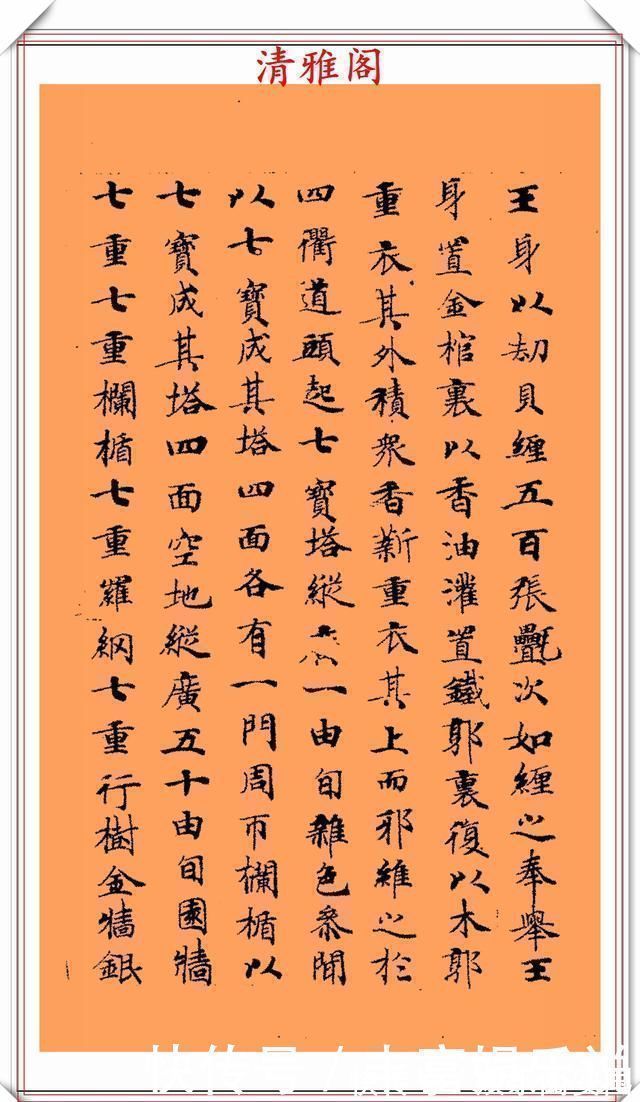 清雅阁
王身以劫貝纏五百張氎次如纏之奉舉王
身置金棺裏以香油灌置鐵郭裏復以木郭
重衣其外積衆香薪重衣其上而耶維之於
四衢道頭起七寶塔縱一由旬雜色叅間
以七寶成其塔四面各有一門周帀欄楯以
七寶成其塔四面空地縱廣五十由旬園牆
七重七重欄楯七重羅網七重行樹金牆銀
快传号